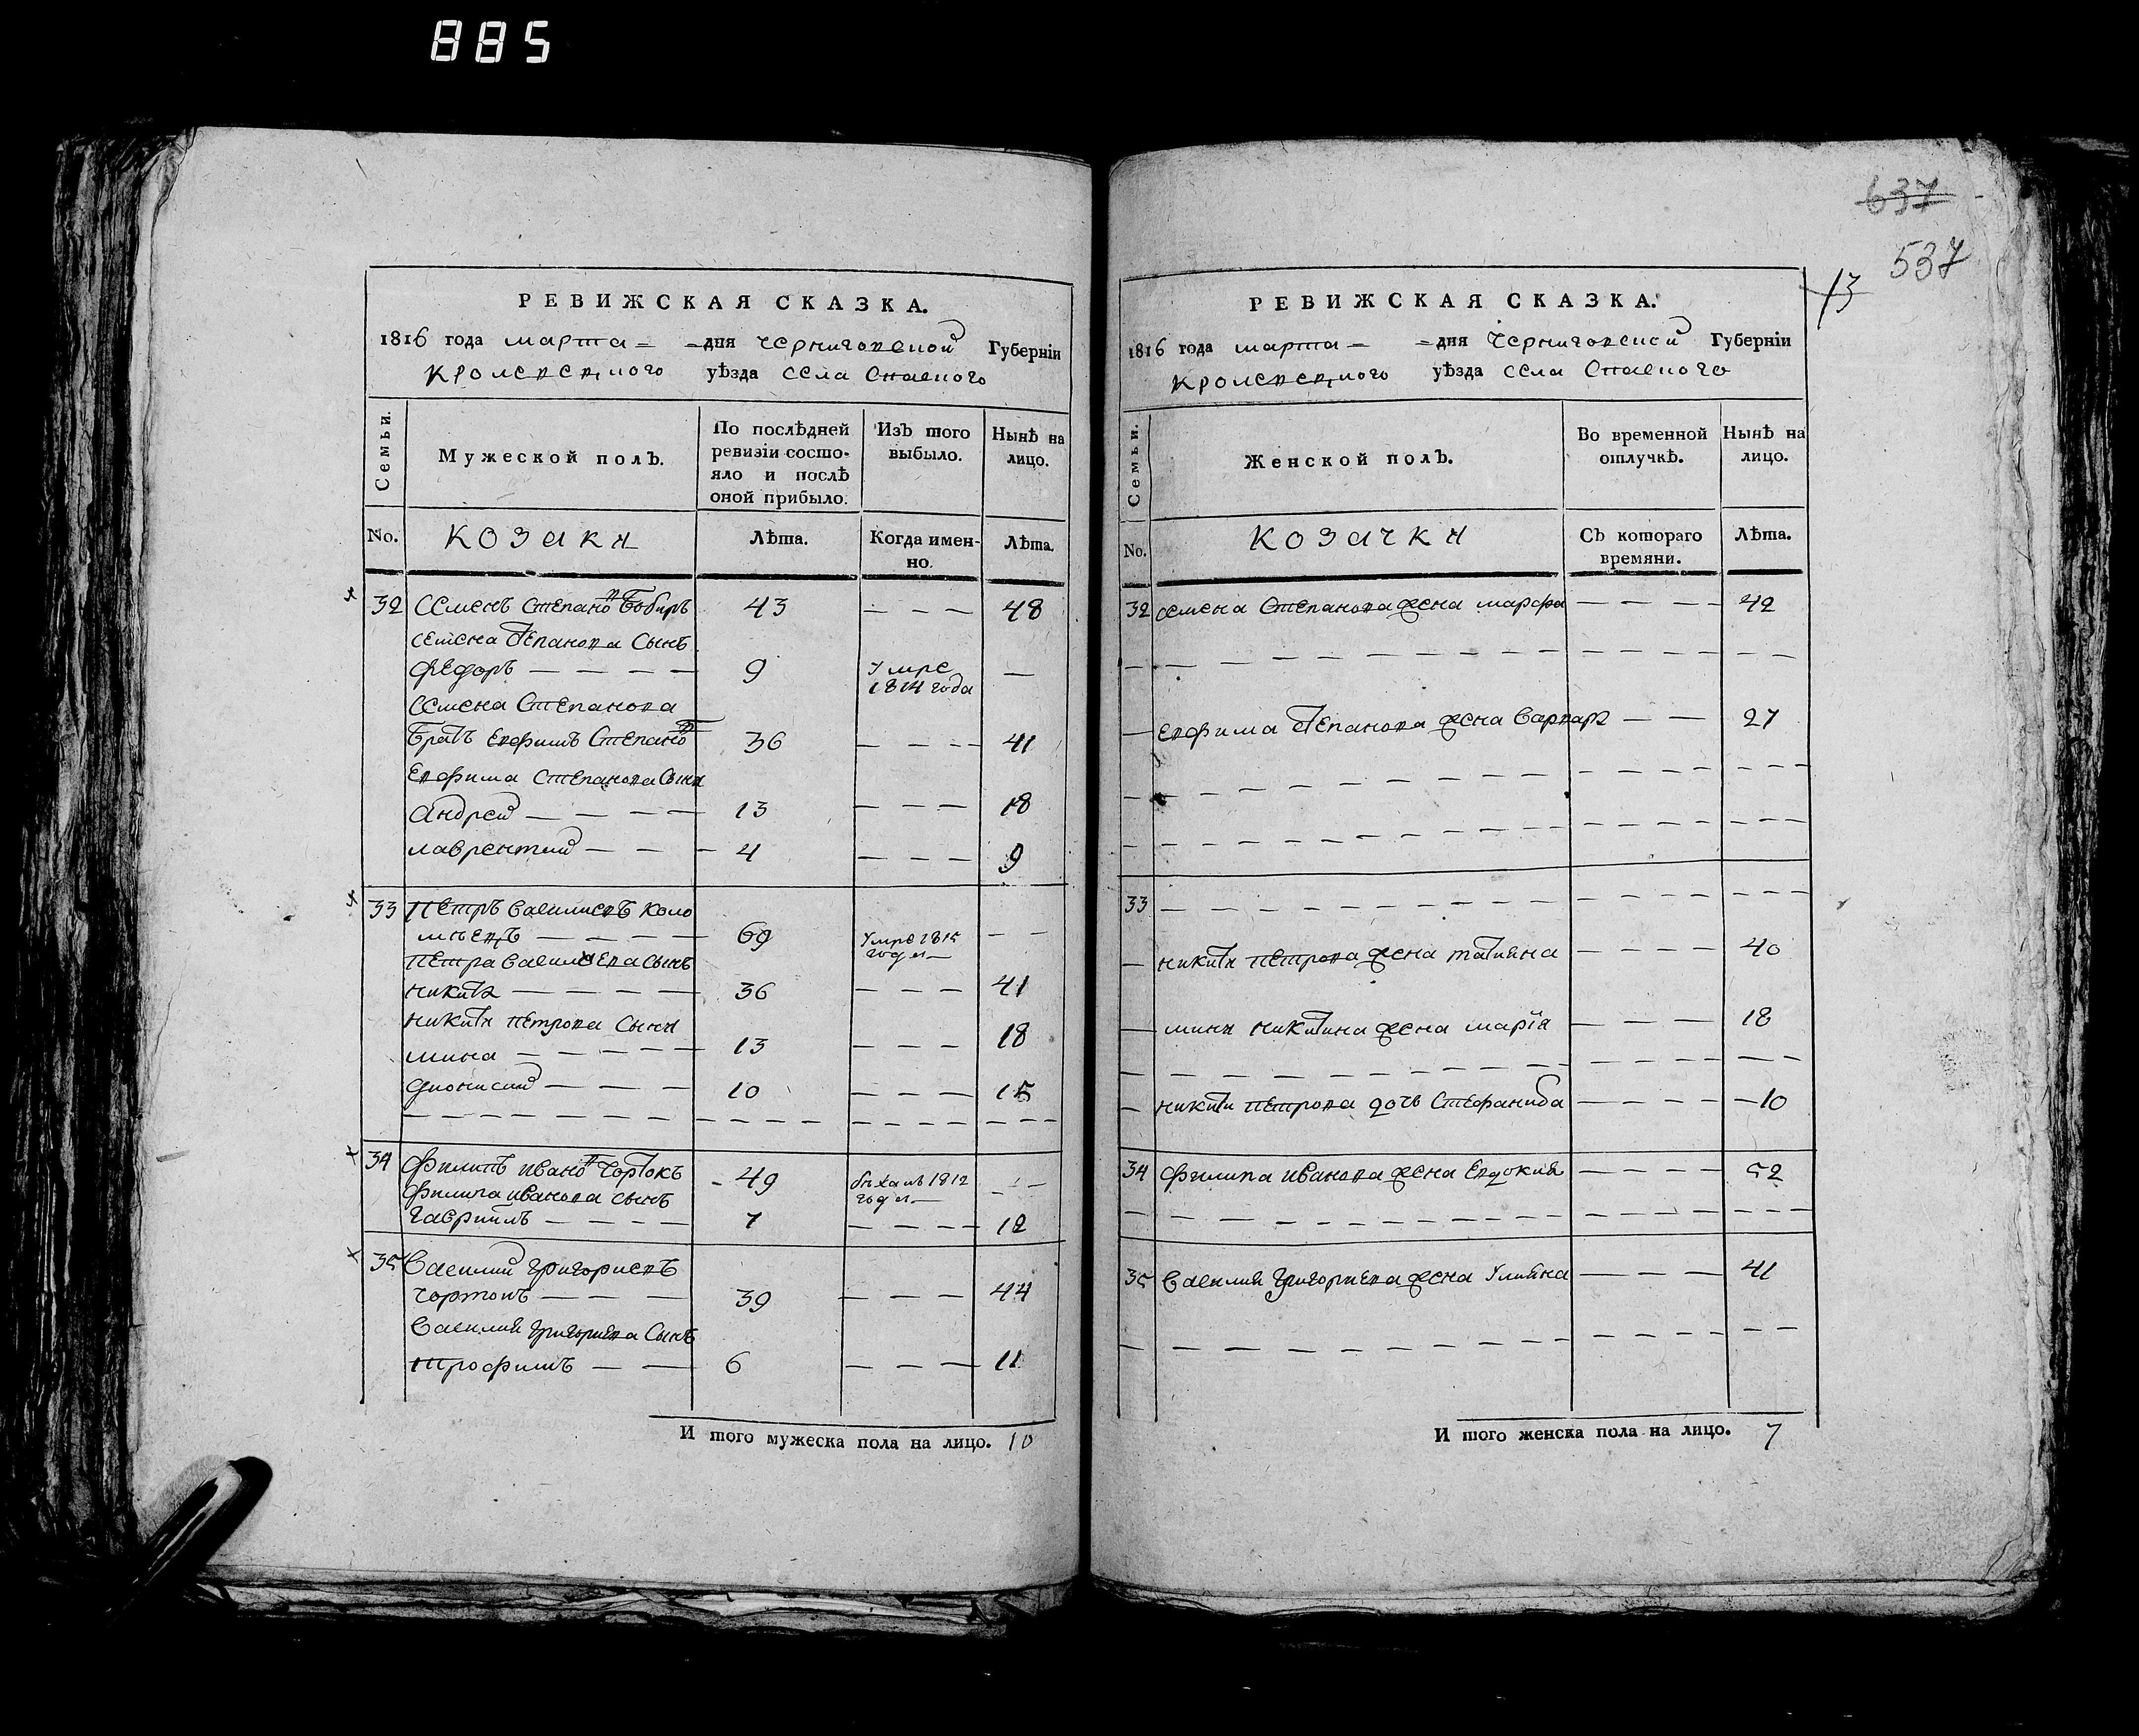 885
РЕВИЖСКАЯ СКАЗКА.
1816 года марта дня Черниговской Губерніи
Кролевецкого уѣзда села Спаского
Семьи.
Мужеской полъ.
По послѣдней ревизіи состояло и послѣ оной прибыло.
Изъ того выбыло.
Нынѣ на лицо.
No. козаки Лѣта. Когда именно. Лѣта.
32 Семенъ Степановъ Бобиръ 43 — — — 48
Семена Степанова Сынъ
Федоръ — — — — 9 Умре 1814 года —
Семена Степанова
Братъ Евфимъ Степановъ 36 — — — 41
Евфима Степанова Сыни
Андрей — — — — 13 — — — 18
лаврентий — — — 4 — — — 9
33 Петръ Василиевъ Коло
миецъ — — — — 69 Умре 1815 года — —
Петра Василиева Сынъ
никита — — — — 36 — — — 41
никити Петрова Сыни
мина — — — — — 13 — — — 18
дионисий — — — 10 — — — 15
34 Филипъ Ивановъ Чортокъ 49 1812 года — —
Филипа Иванова сынъ
Гавриилъ — — — — 7 — — — — 12
35 Василий Григориевъ
Чортокъ — — — 39 — — — 44
Василия Григориева Сынъ
Трофимъ — — 6 — — — 11
И того мужеска пола на лицо. 10
637
537
13
РЕВИЖСКАЯ СКАЗКА.
1816 года марта дня Черниговской Губерніи
Кролевецкого уѣзда села Спаского
Семьи.
Женской полъ.
Во временной отлучкѣ.
Нынѣ на лицо.
No. козачки Съ котораго времяни. Лѣта.
32 Семена Степанова жена марфа — — — — 42
— Евфима Степанова жена Варвара — — 27
33 — — — — — — — — — —
— никити Петрова жена татияна — — — 40
— мини никитина жена марія — — — 18
— никити Петрова дочь Стефанида — — — — 10
34 Филипа Иванова жена Евдокия — — — — 52
35 Василия Григориева жена Улияна — — — 41
И того женска пола на лицо. 7